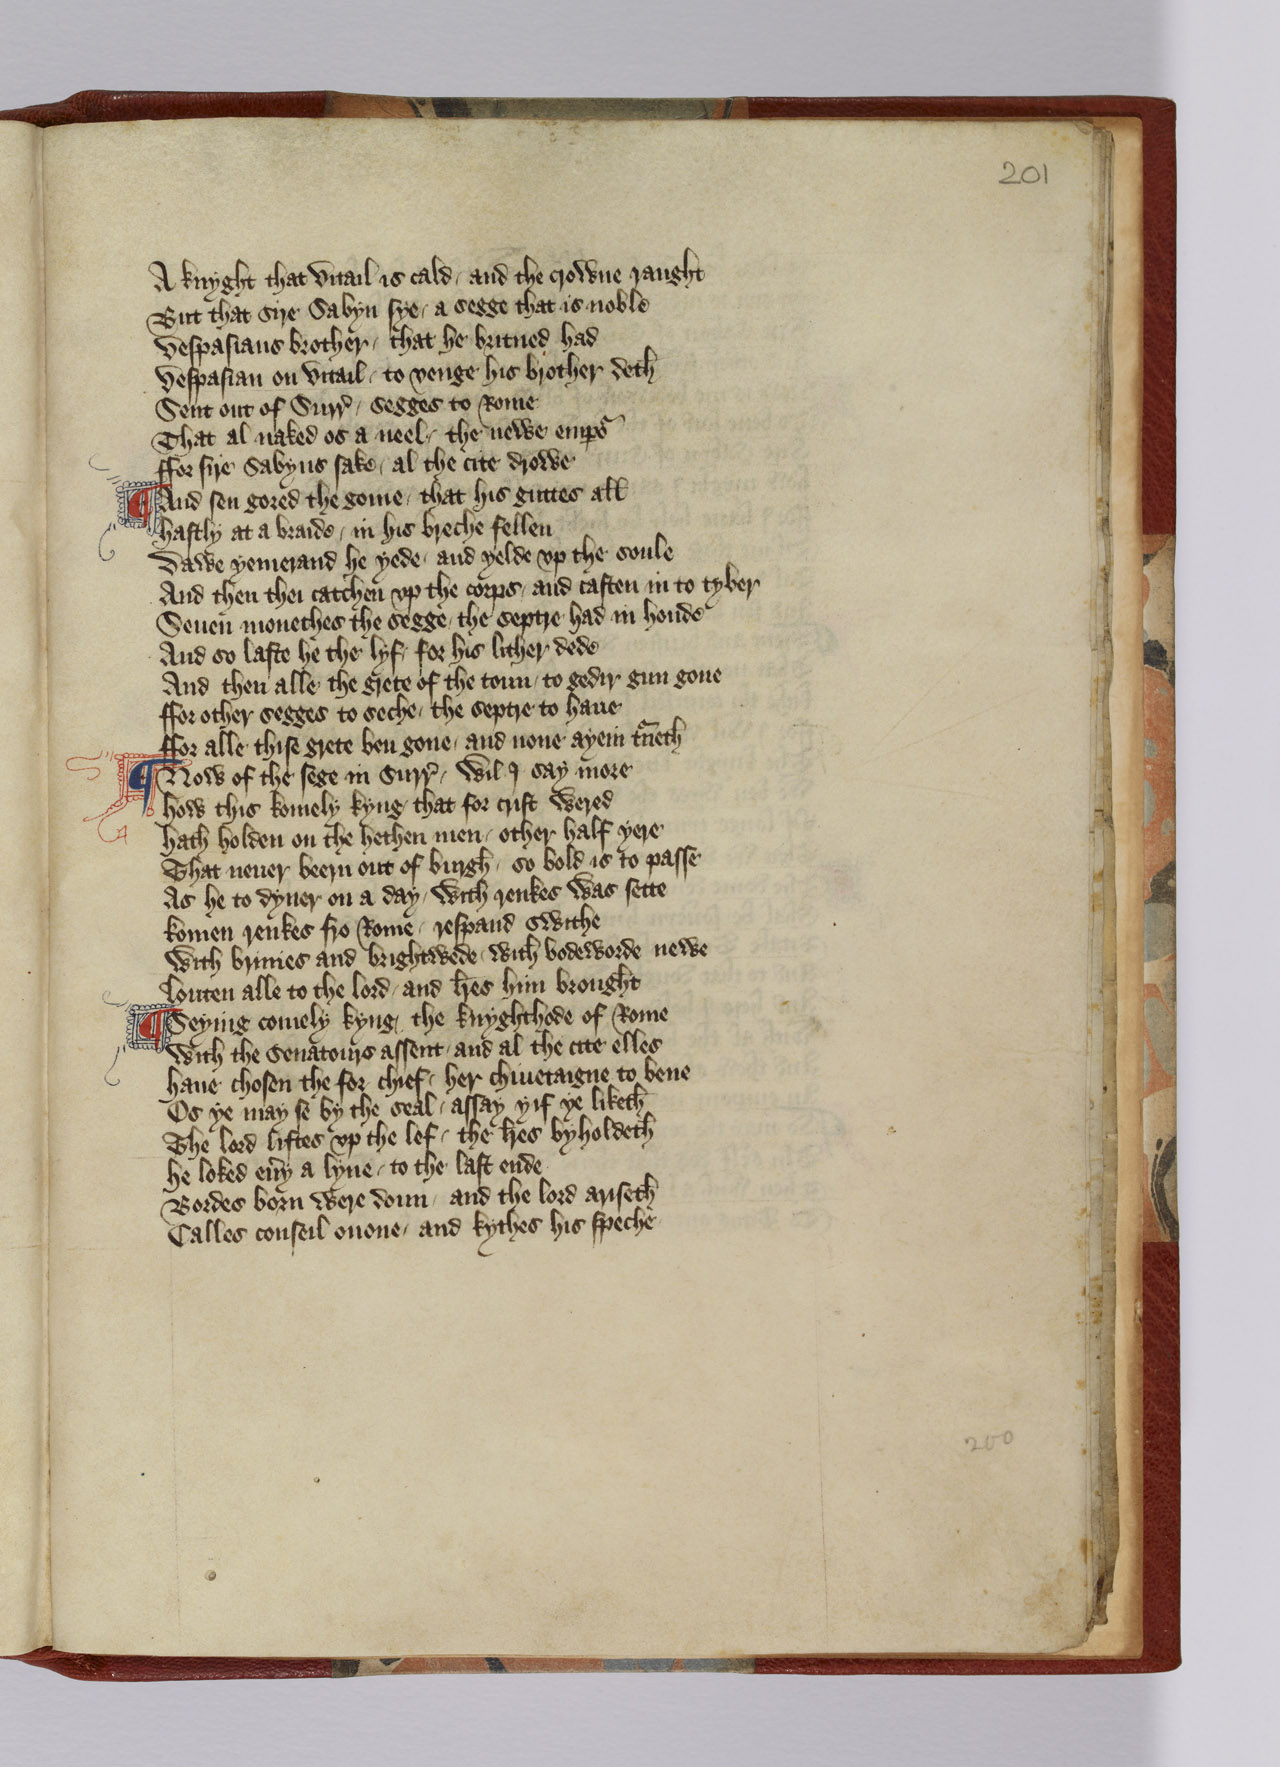 201
A knyght that vitail is cald / and the crowne raught
But that sire Sabyn sye / a segge that is noble
Vespasians brother / that he britned had
Vespasian on vitail / to venge his brother deth
Sent out of Surr' / segges to Rome
That al naked os a neel / the newe emp̲o͛
ffor sire Sabyns sake / al the cite drowe
¶ And sen gored the gome / that his guttes all
hastly at a braide / in his breche fellen
Dawe yemerand he yede / and yelde vp the soule
And then thei catchen vp the corps / and casten in to tyber
Seuen monethes the segge / the septre had in honde
And so laste he the lyf / for his lither dede
And then alle the grete of the toun / to gedir gun gone
ffor other segges to seche / the septre to haue
ffor alle thise grete ben gone / and none ayein t̃neth
¶ Now of the sege in Surr' / wil I say more
how this komely kyng / that for crist wered
hath holden on the hethen men / other half yere
That neuer beern out of burgh / so bold is to passe
As he to dyner on a day / with renkes was sette
komen renkes fro Rome / respand swithe
With brinies and brightwede / with bodeworde newe
Louten alle to the lord / and l̃res him brought
¶ Seying comely kyng / the knyghthode of Rome
With the senatours assent / and al the cite elles
haue chosen the for chief / her chiuetaigne to bene
Os ye may se by the seal / assay yif ye liketh
The lord liftes vp the lef / the l̃res byholdeth
he loked eũy a lyne / to the last ende
Bordes born were doun / and the lord ariseth
Calles conseil onone / and kythes his speche
200